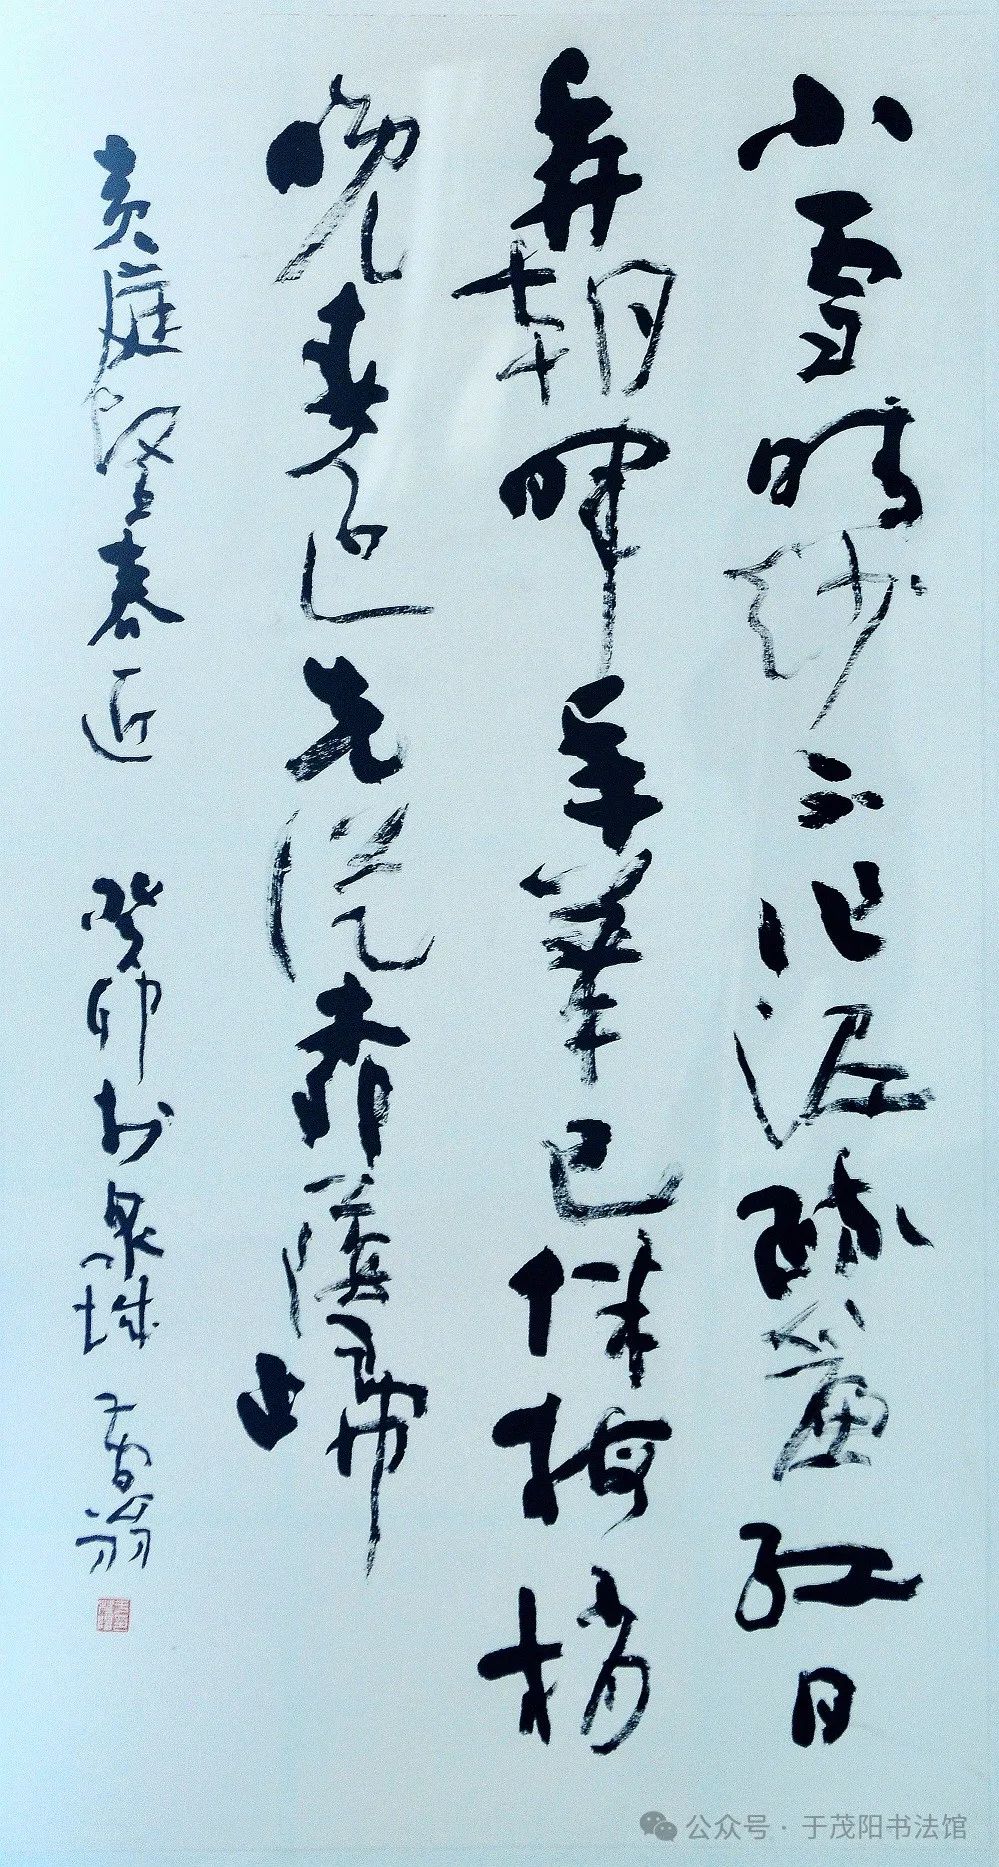 小雪晴紗不作泥疏簾红日
弄朝暉年華已伴梅梢
晚春色先從草際歸
黄庭堅春近 癸卯於泉城 翁
公众号·于茂阳书法馆